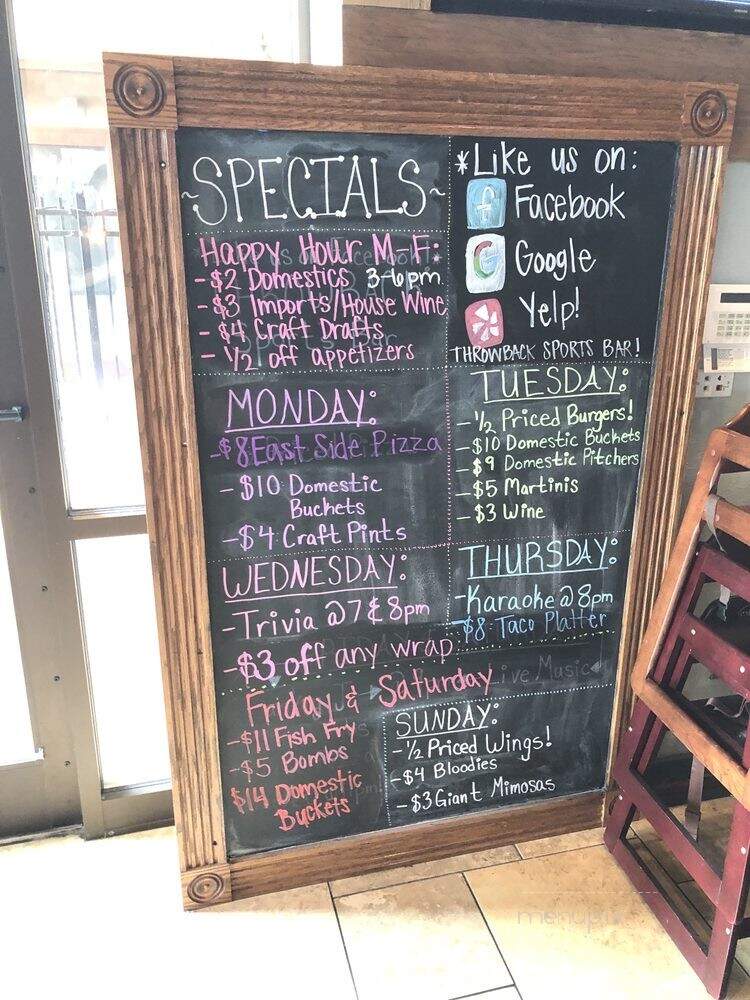 ~SPECIALS~
Happy Hour M-F:
-$2 Domestics 3-6pm
-$3 Imports/House Wine
-$4 Craft Drafts
- 1/2 off appetizers
*Like us on:
f Facebook
G Google
Yelp!
THROWBACK SPORTS BAR!
MONDAY:
-$8 East Side Pizza
-$10 Domestic
Buckets
-$4 Craft Pints
TUESDAY:
-1/2 Priced Burgers!
-$10 Domestic Buckets
-$9 Domestic Pitchers
-$5 Martinis
-$3 Wine
WEDNESDAY:
-Trivia @ 7 & 8pm
-$3 off any wrap
THURSDAY:
-Karaoke @ 8pm
-$8 Taco Platter
Friday & Saturday
Live Music
-$11 Fish Fry
-$5 Bombs
$14 Domestic
Buckets
SUNDAY:
-1/2 Priced Wings!
-$4 Bloodies
-$3 Giant Mimosas
menupix